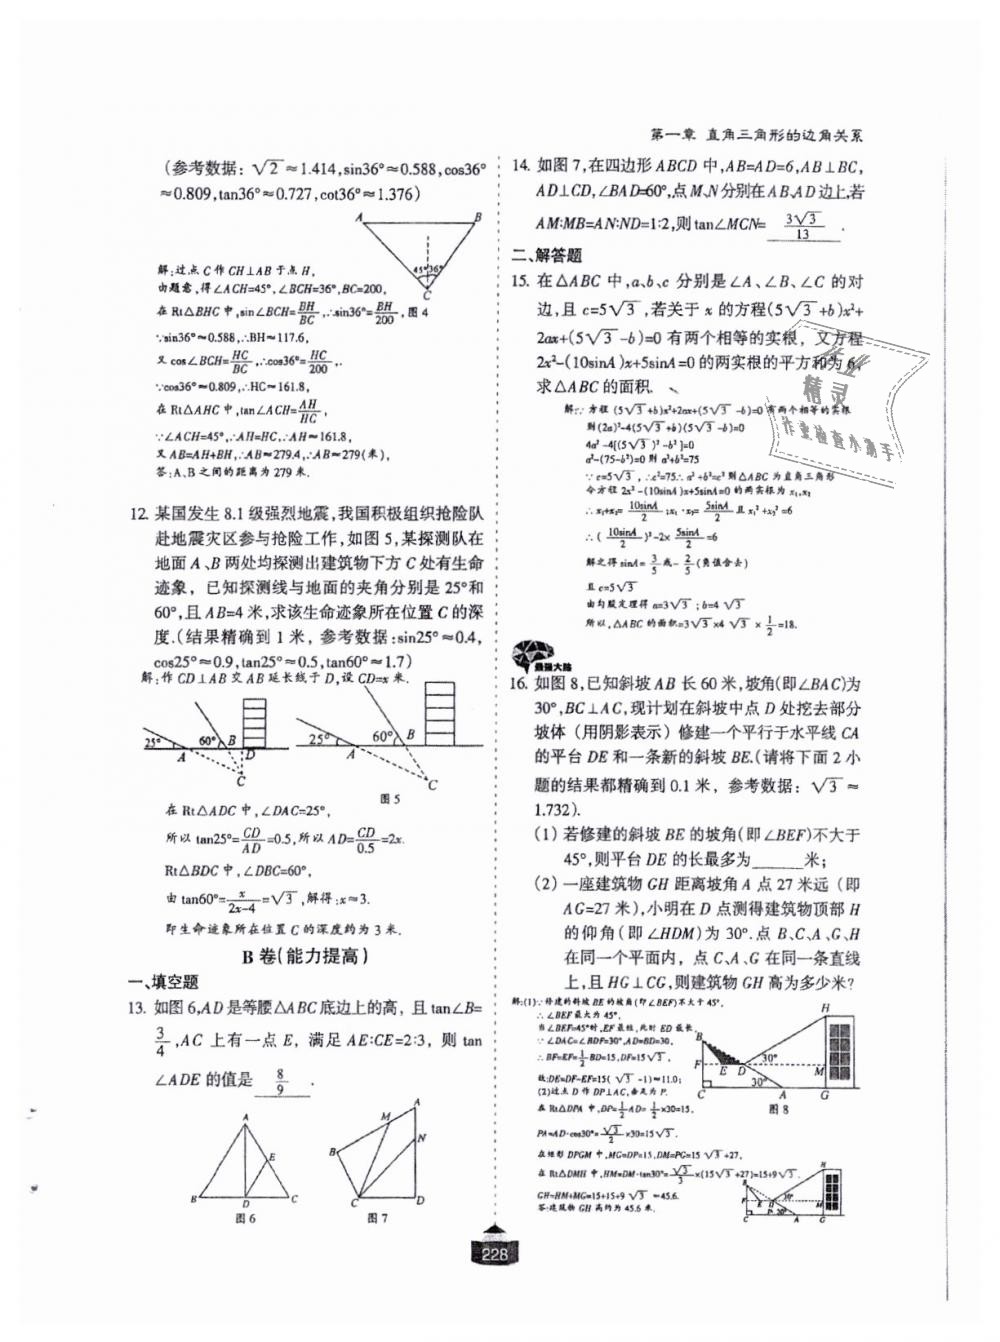 第一章 直角三角形的边角关系
(参考数据：√2≈1.414,sin36°≈0.588,cos36°
≈0.809,tan36°≈0.727,cot36°≈1.376)
A B
45° 36°
C
图4
解:过点 C 作 CH⊥AB 于点 H,
由题意,得∠ACH=45°,∠BCH=36°,BC=200,
在 Rt△BHC 中,sin∠BCH=BH/BC,∴sin36°=BH/200,
∵sin36°≈0.588,∴BH≈117.6,
又 cos∠BCH=HC/BC,∴cos36°=HC/200,.
∵cos36°≈0.809,∴HC≈161.8,
在 Rt△AHC 中,tan∠ACH=AH/HC,
∵∠ACH=45°,∴AH=HC,∴AH≈161.8,
又 AB=AH+BH,∴AB≈279.4,∴AB≈279(米),
答:A、B 之间的距离为 279 米.
12. 某国发生 8.1 级强烈地震,我国积极组织抢险队
赴地震灾区参与抢险工作,如图 5,某探测队在
地面 A、B 两处均探测出建筑物下方 C 处有生命
迹象，已知探测线与地面的夹角分别是 25°和
60°,且 AB=4 米,求该生命迹象所在位置 C 的深
度.(结果精确到 1 米，参考数据:sin25°≈0.4,
cos25°≈0.9,tan25°≈0.5,tan60°≈1.7)
解:作 CD⊥AB 交 AB 延长线于 D,设 CD=x 米.
25° 60° B A D C
25° 60° B A C
图 5
在 Rt△ADC 中,∠DAC=25°,
所以 tan25°=CD/AD=0.5,所以 AD=CD/0.5=2x.
Rt△BDC 中,∠DBC=60°,
由 tan60°=x/(2x-4)=√3,解得:x≈3.
即生命迹象所在位置 C 的深度约为 3 米.
B 卷(能力提高)
一、填空题
13. 如图 6,AD 是等腰△ABC 底边上的高，且 tan∠B=
3/4,AC 上有一点 E，满足 AE:CE=2:3，则 tan
∠ADE 的值是 8/9 .
A E B D C
图 6
A M N B C D
图 7
14. 如图 7,在四边形 ABCD 中,AB=AD=6,AB⊥BC,
AD⊥CD,∠BAD=60°,点 M、N 分别在 AB、AD 边上,若
AM:MB=AN:ND=1:2,则 tan∠MCN= 3√3/13 .
二、解答题
15. 在△ABC 中,a、b、c 分别是∠A、∠B、∠C 的对
边,且 c=5√3,若关于 x 的方程(5√3+b)x²+
2ax+(5√3-b)=0 有两个相等的实根，又方程
2x²-(10sinA)x+5sinA=0 的两实根的平方和为 6,
求△ABC 的面积.
解:∵方程 (5√3+b)x²+2ax+(5√3-b)=0 有两个相等的实根
则(2a)²-4(5√3+b)(5√3-b)=0
4a²-4[(5√3)²-b²]=0
a²-(75-b²)=0 则 a²+b²=75
∵c=5√3,∴c²=75∴a²+b²=c² 则△ABC 为直角三角形
令方程 2x²-(10sinA)x+5sinA=0 的两实根为 x₁,x₂
∴x₁+x₂=10sinA/2;x₁·x₂=5sinA/2 且 x₁²+x₂²=6
∴(10sinA/2)²-2×5sinA/2=6
解之得 sinA=3/5 或-2/5(负值舍去)
且 c=5√3
由勾股定理得 a=3√3;b=4√3
所以,△ABC 的面积=3√3×4√3×1/2=18.
最强大脑
16. 如图 8,已知斜坡 AB 长 60 米,坡角(即∠BAC)为
30°,BC⊥AC,现计划在斜坡中点 D 处挖去部分
坡体（用阴影表示）修建一个平行于水平线 CA
的平台 DE 和一条新的斜坡 BE.(请将下面 2 小
题的结果都精确到 0.1 米，参考数据：√3≈
1.732).
(1) 若修建的斜坡 BE 的坡角(即∠BEF)不大于
45°,则平台 DE 的长最多为______米;
(2) 一座建筑物 GH 距离坡角 A 点 27 米远（即
AG=27 米),小明在 D 点测得建筑物顶部 H
的仰角(即∠HDM)为 30°.点 B、C、A、G、H
在同一个平面内，点 C、A、G 在同一条直线
上,且 HG⊥CG,则建筑物 GH 高为多少米?
解:(1)∵修建的斜坡 BE 的坡角(即∠BEF)不大于 45°,
∴∠BEF 最大为 45°,
当∠BEF=45°时,EF 最短,此时 ED 最长,
∵∠DAC=∠BDF=30°,AD=BD=30,
∴BF=EF=1/2BD=15,DF=15√3,
故:DE=DF-EF=15(√3-1)≈11.0;
(2)过点 D 作 DP⊥AC,垂足为 P.
在 Rt△DPA 中,DP=1/2AD=1/2×30=15,
PA=AD·cos30°=√3/2×30=15√3.
在矩形 DPGM 中,MG=DP=15,DM=PG=15√3+27,
在 Rt△DMH 中,HM=DM·tan30°=√3/3×(15√3+27)=15+9√3.
GH=HM+MG=15+15+9√3≈45.6.
答:建筑物 GH 高约为 45.6 米.
H B F E D 30° M 30° C A G
图 8
H B F E D 30° M C P 30° A G
作业
精灵
作业检查小助手
228